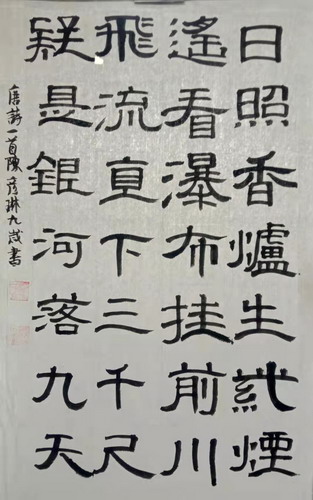 日照香爐生紫煙
遙看瀑布挂前川
飛流直下三千尺
疑是銀河落九天
唐詩一首陳彥琳九歲書